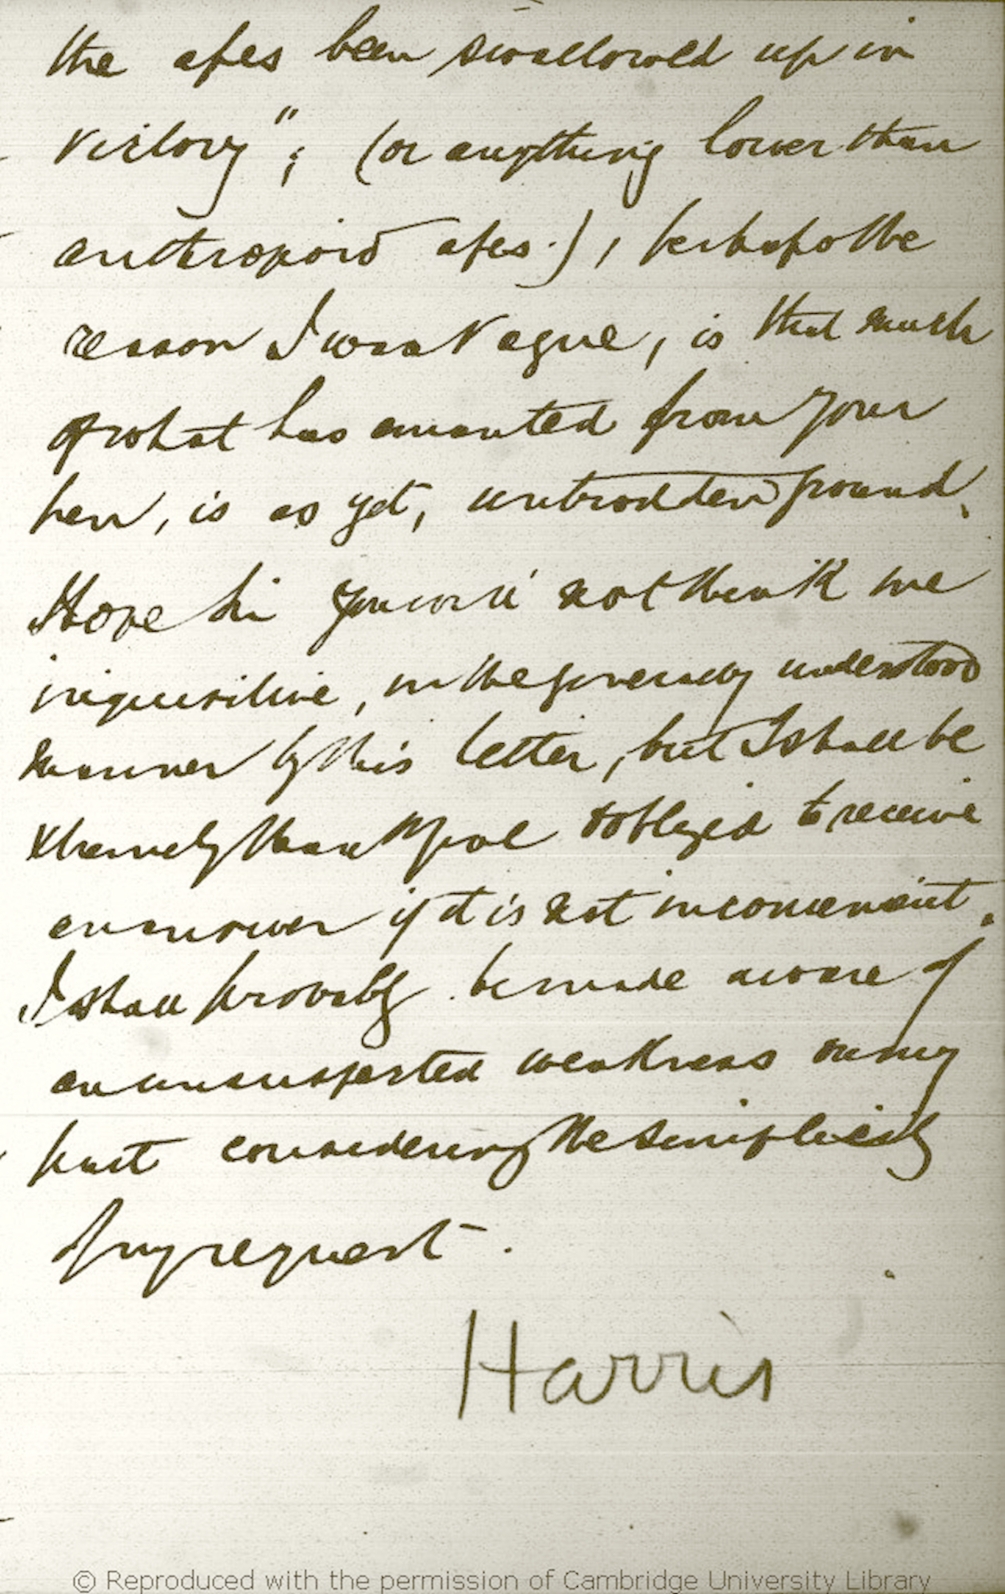 the apes been swallowed up in
victory"; (or anything lower than
anthropoid apes.), perhaps the
reason I was vague, is that much
of what has emanated from your
pen, is as yet, untrodden ground.
Hope Sir you will not think me
inquisitive, in the generally understood
manner by this letter, but I shall be
xtremely thankful & obliged to receive
an answer if it is not inconvenient.
I shall probably be made aware of
an unsuspected weakness on my
part considering the simplicity
of my request.
Harris
© Reproduced with the permission of Cambridge University Library